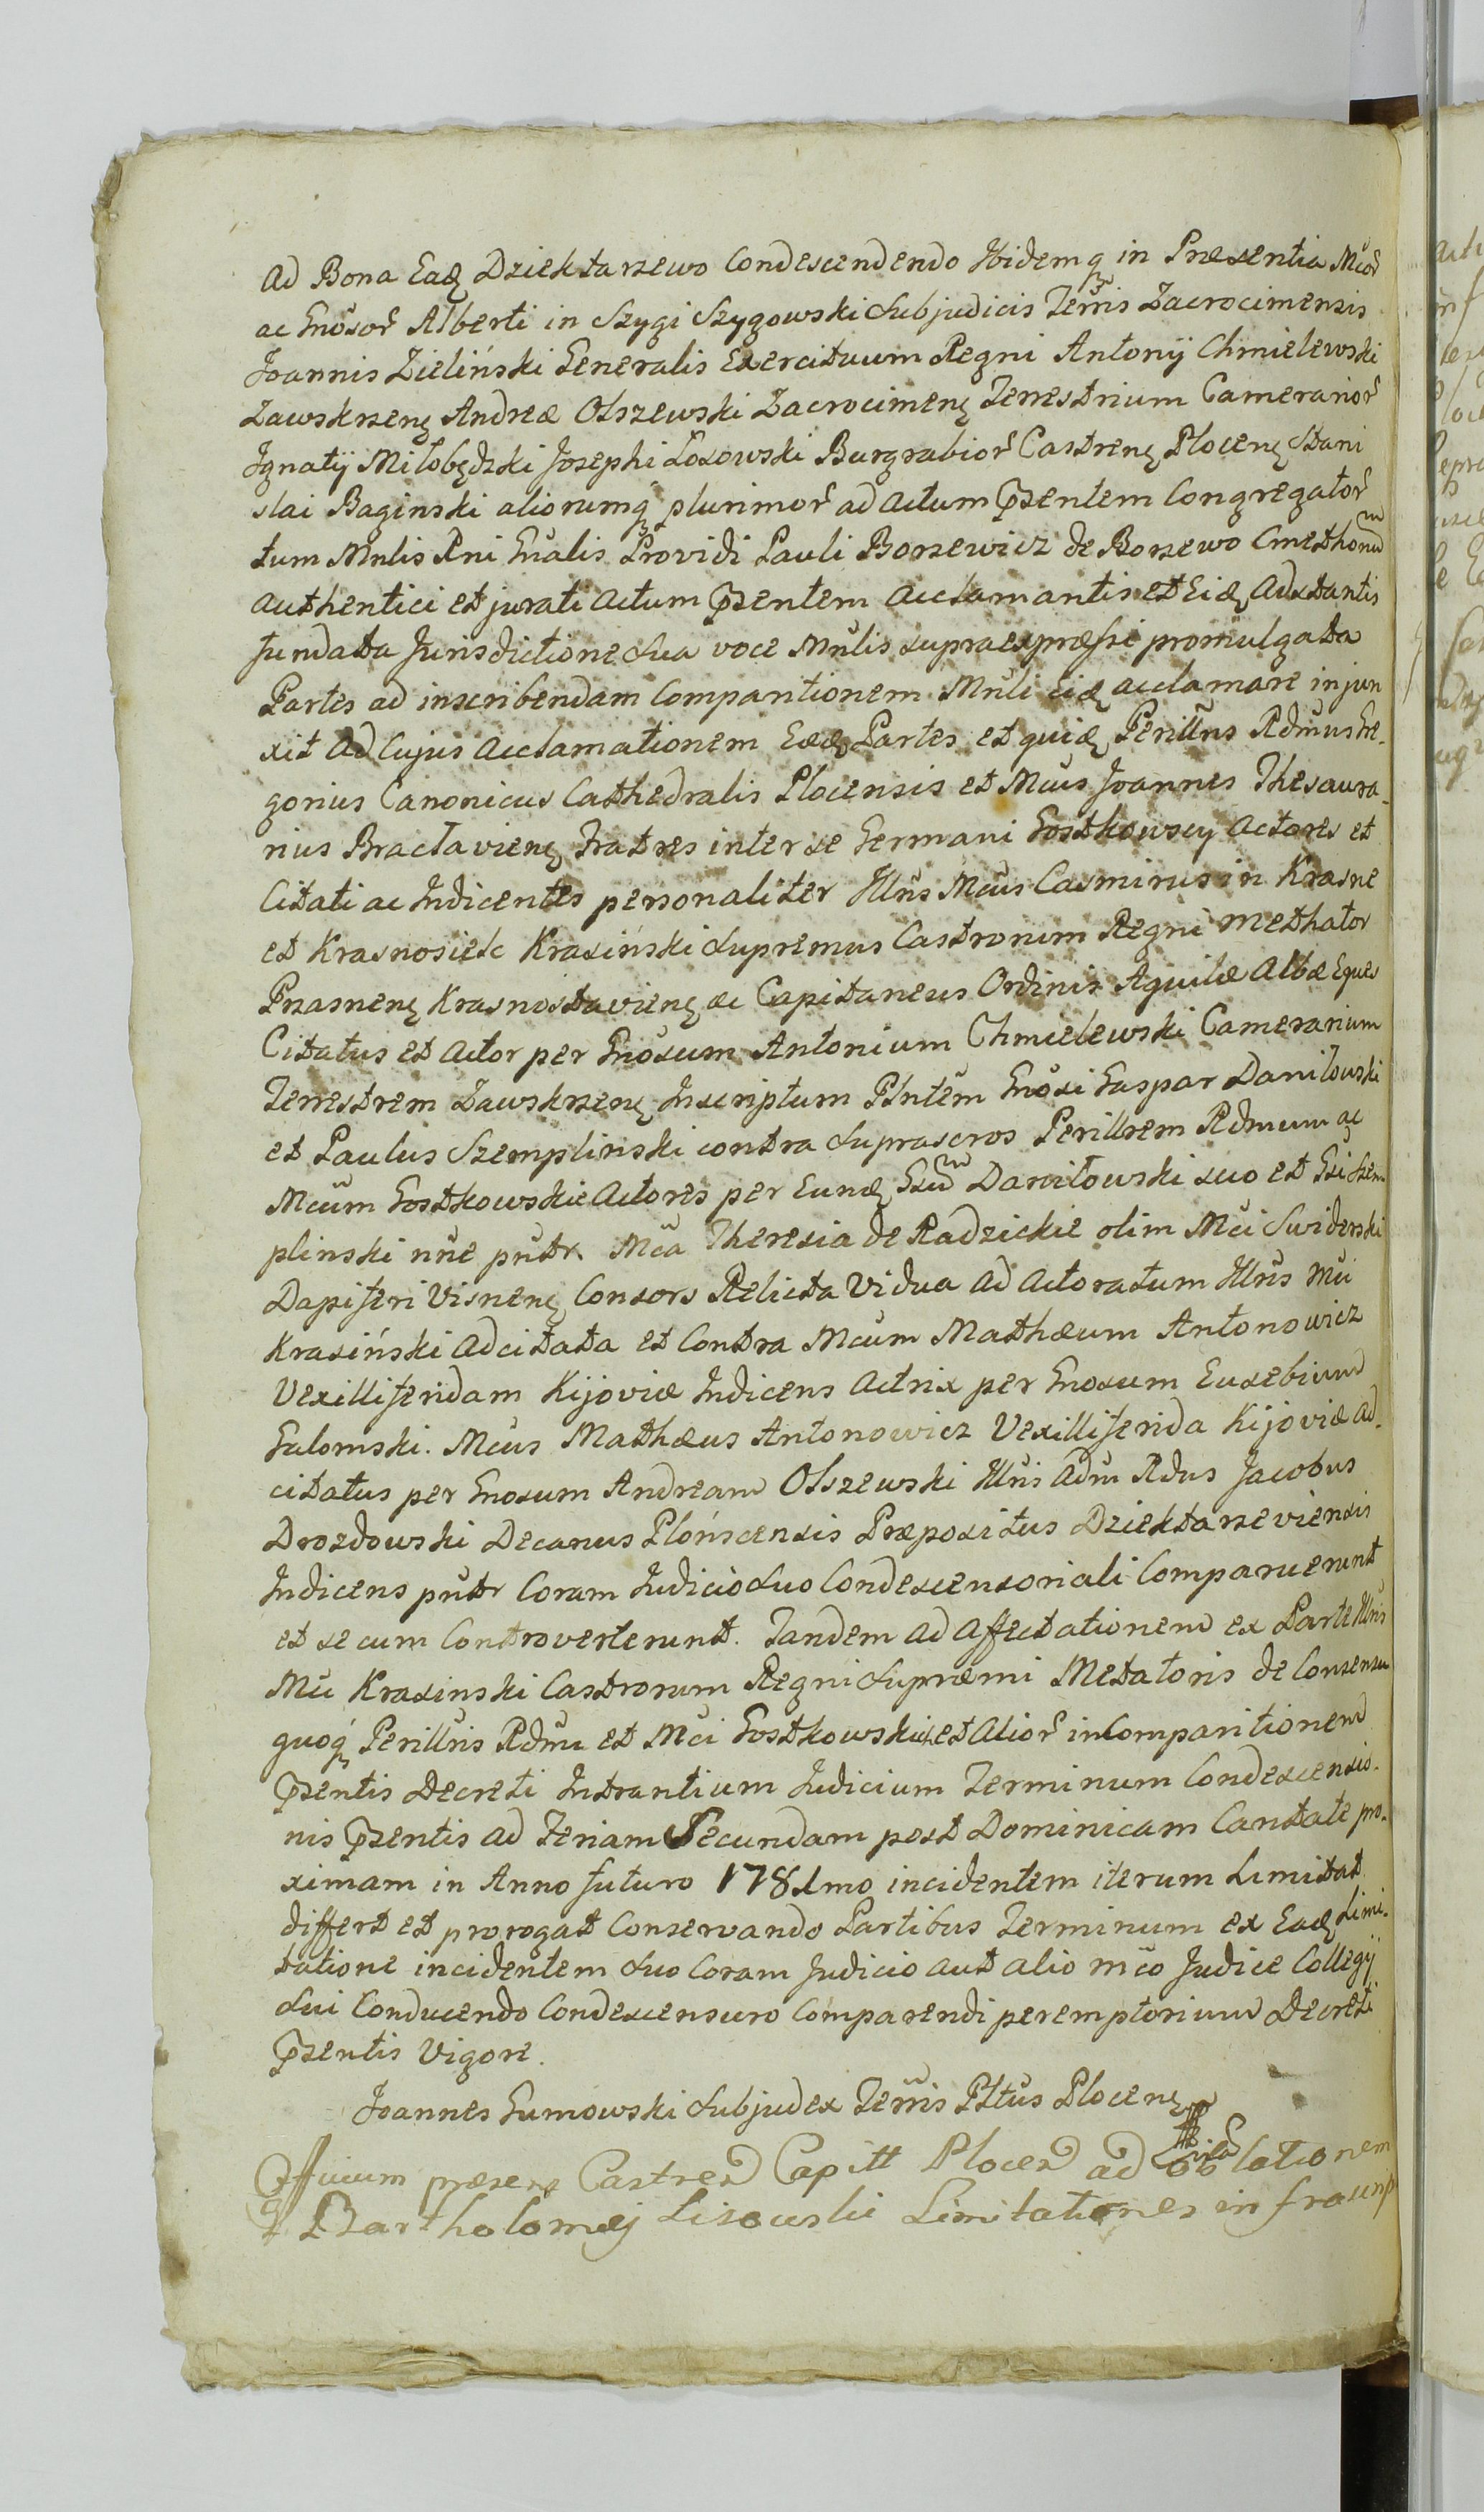 ad Bona Eadę Dziektarzewo Condescendendo Ibidemq in Præsentia Mcor̃
ac Gnõsor̃ Alberti in Szygi Szygowski Subjudicis Terr̃is Zacrocimensis
Joannis Zieliński Generalis Exercituum Regni Antonij Chmielewski
Zawskrzenę Andreæ Olszewski Zacrocimenę Terrestrium Camerarior̃
Ignatij Miłobędzki Josephi Łosowski Burgrabior̃ Castrenę Plocenę Stani
slai Baginski aliorumq plurimor̃ ad actum p̃sentem Congregator̃
tum Mnlis Rni Gñalis Providi Pauli Borzewicz de Borzewo Cmethonũ
authentici et jurati actum p̃sentem acclamantis et Eidę adstantis
fundata Jurisdictione Sua voce Mnlis supraexpræssi promulgata
Partes ad inscribendam Comparitionem Mnli Eidę acclamare injun
xit ad Cujus acclamationem Eædę Partes et quidę Perillris Rdmus Gre-
gorius Canonicus Cathedralis Plocensis et Mcus Joannes Thesaura-
rius Braclavienę Fratres inter se Germani Gostkowscy actores et
Citati ac Indicentes personaliter Illris Mcus Casmirus in Krasne
et Krasnosielc Krasiński Supremus Castrorum Regni Methator
Przasnenę Krasnostavienę ac Capitaneus Ordinis Aquilæ Albæ Eques
Citatus et actor per Gnõsum Antonium Chmielewski Camerarium
Terrestrem Zawskrzenę Inscriptum Plntem Gnõsi Gaspar Daniłowski
et Paulus Szemplinski contra Suprascros Perillrem Rdmum ac
Mcum Gostkowskie actores per Eundę Gsũ Daniłowski suo et Gsi Szem
plinski nñe pñtr. Mca Theresia de Radzickie olim Mci Swiderski
Dapiferi Visnenę Consors Relicta Vidua ad actoratum Illris Mci
Krasiński adcitata et Contra Mcum Mathæum Antonowicz
Vexilliferidam Kijoviæ Indicens actrix per Gnosum Eusebium
Galomski. Mcus Mathæus Antonowicz Vexilliferida Kijoviæ ad-
citatus per Gnosum Andream Olszewski Illris adm Rdus Jacobus
Drozdowski Decanus Płońscensis Præpositus Dziektarzeviensis
Indicens pñtr Coram Judicio Suo Condescensoriali Comparuerunt
et se cum Controverterunt. Tandem ad affectationem ex Parte Illris
Mci Krasinski Castrorum Regni Supremi Metatoris de Consensu
quoq Perillris Rdmi et Mci Gostkowskich et alior̃ in Comparitionem
p̃sentis Decreti Intrantium Judicium Terminum Condescensio-
nis p̃sentis ad Feriam Secundam post Dominicam Cantate pro-
ximam in Anno futuro 1781mo incidentem iterum Limitat
differt et prorogat Conservando Partibus Terminum ex Eadę Limi-
tatione incidentem Suo Coram Judicio aut alio mco Judice Collegij
Sui Conducendo Condescensuro Comparendi peremptorium Decreti
p̃sentis Vigore.
Joannes Gumowski Subjudex Terr̃is Pltus Plocenę
Officium præsens Castren Capitt Plocen ad oblationem
G Bartholomæj Lisowski Limitationes in fra scrip